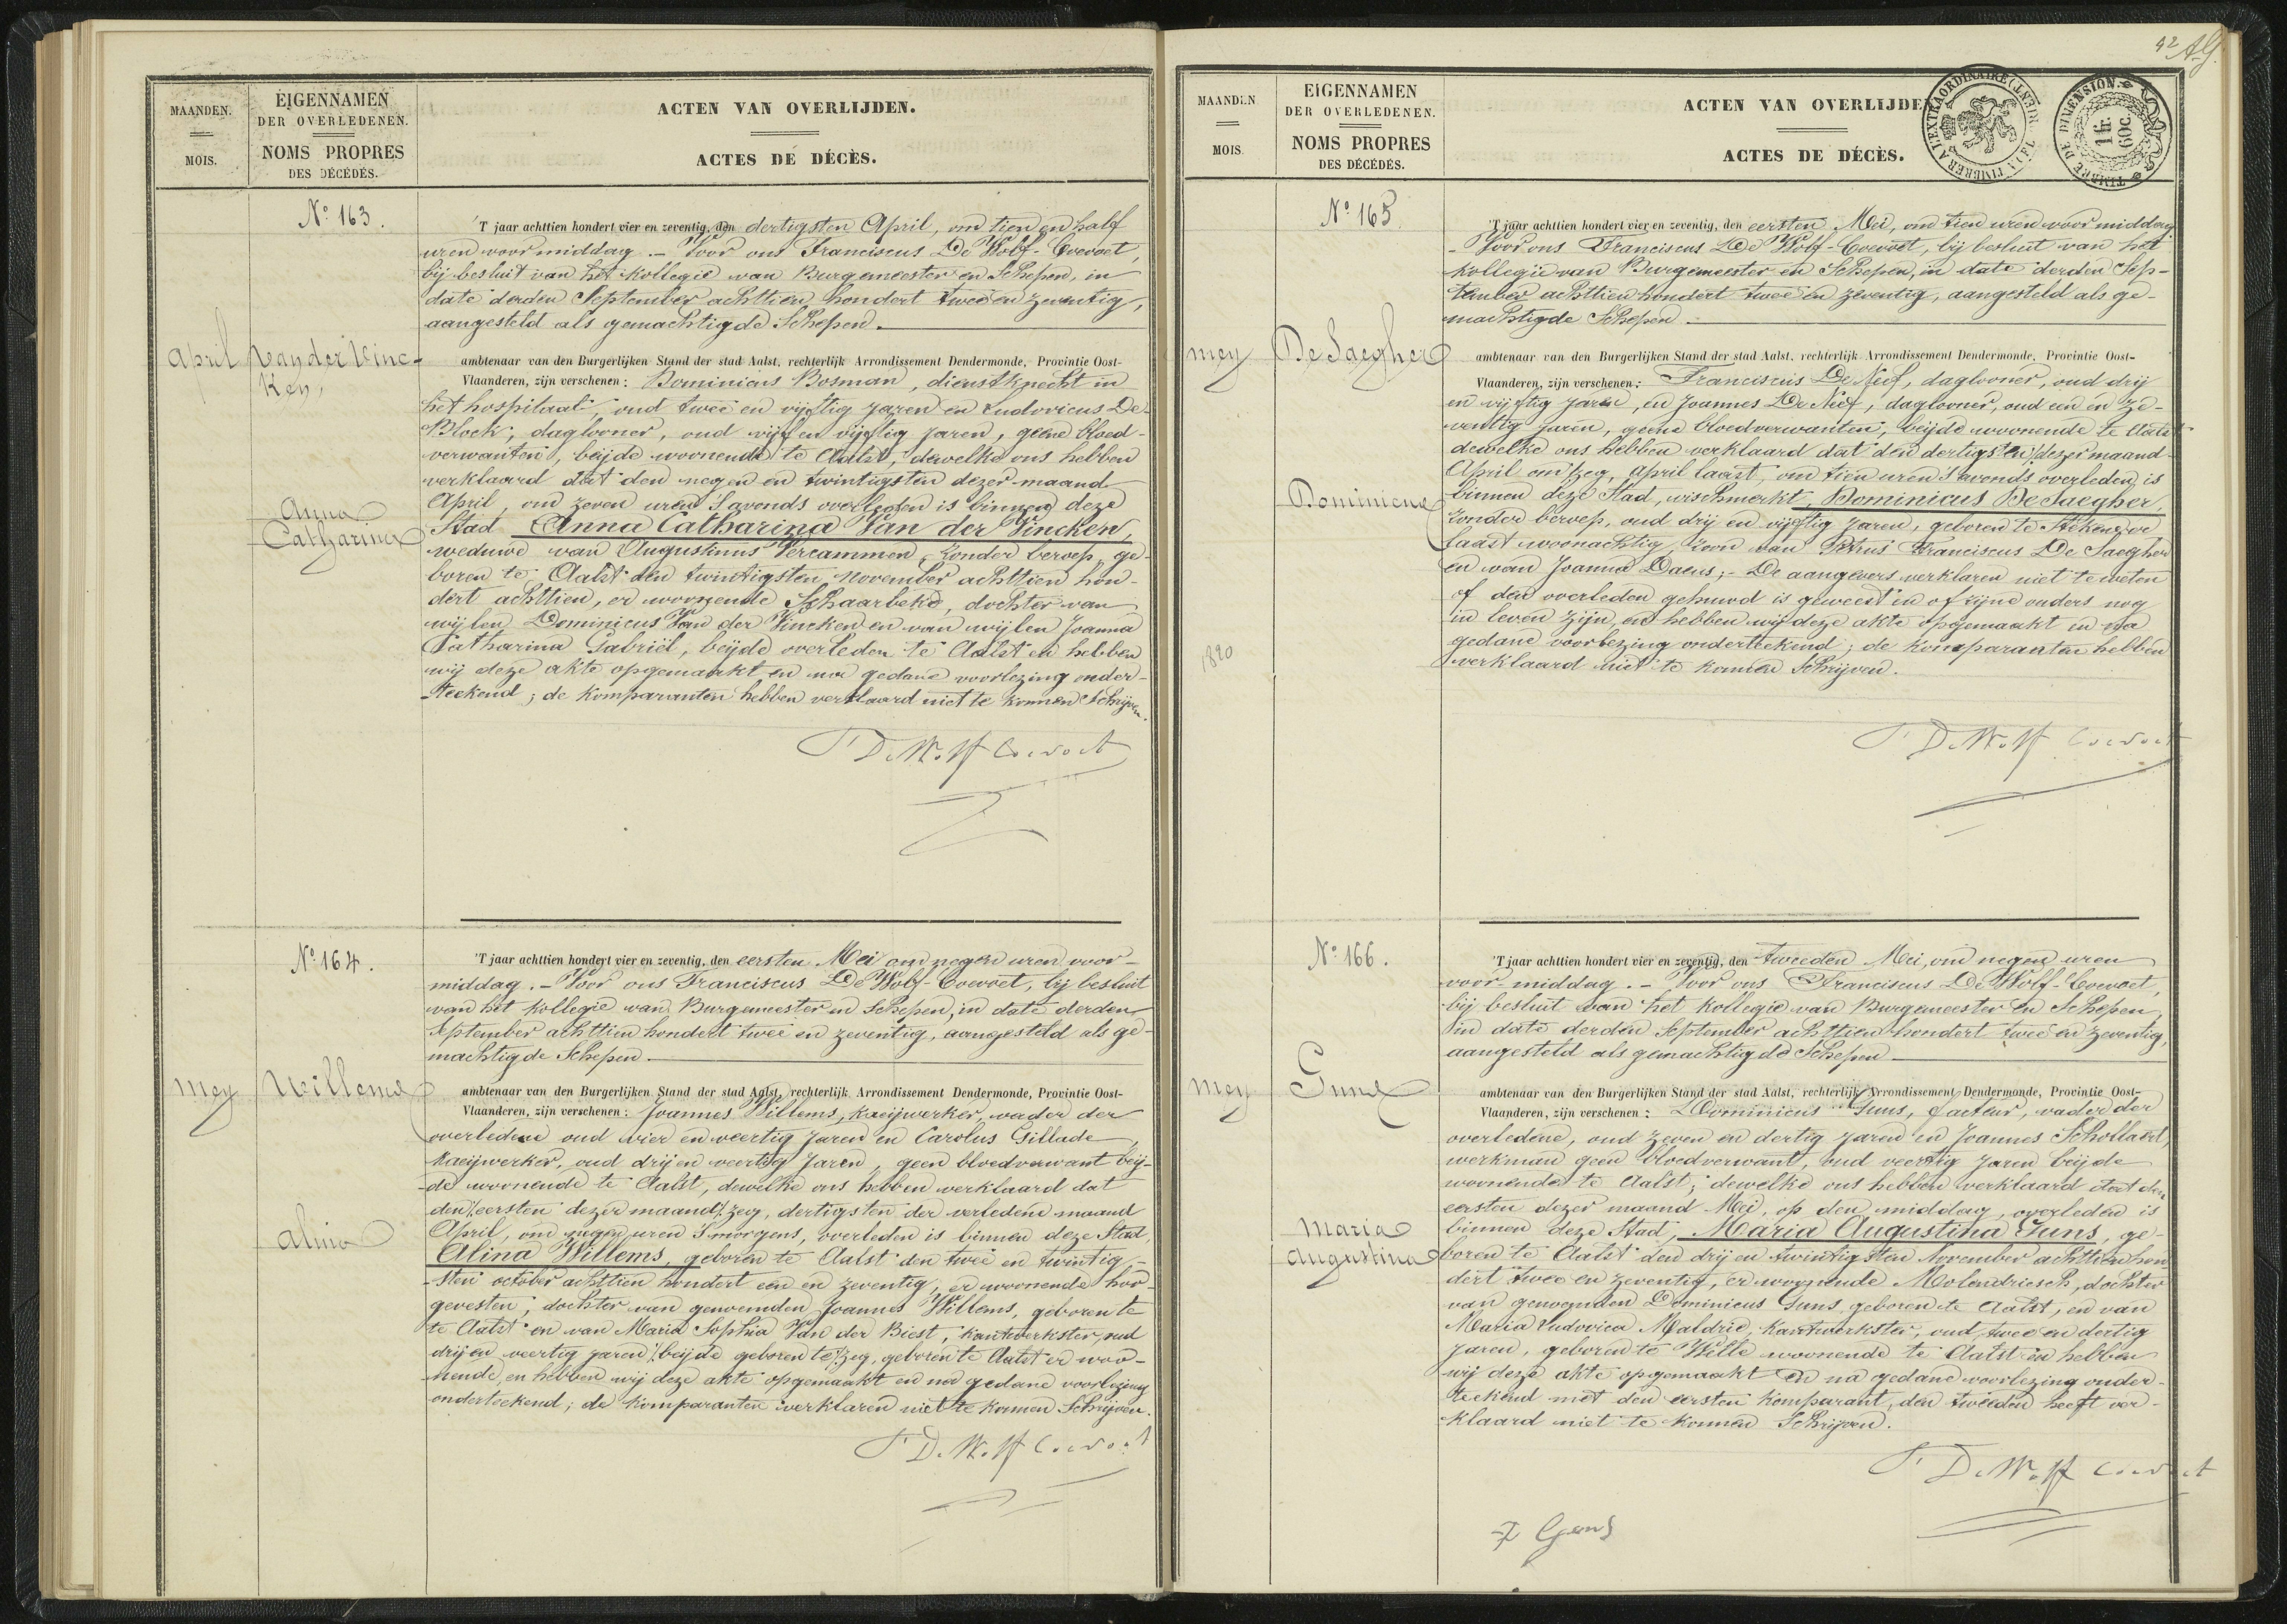 MAANDEN.
MOIS.
EIGENNAMEN
DER OVERLEDENEN.
NOMS PROPRES
DES DÉCÉDÉS.
ACTEN VAN OVERLIJDEN.
ACTES DE DÉCÈS.
No 163.
April
Van der Vinc-
ken,
Anna
Catharina
'T jaar achttien hondert vier en zeventig, den dertigsten April, om tien en half
uren voormiddag. - Voor ons Franciscus De Wolf-Coevoet,
bij besluit van het kollegie van Burgemeester en Schepen, in
date derden September achttien hondert twee en zeventig,
aangesteld als gemachtigde Schepen.
ambtenaar van den Burgerlijken Stand der stad Aalst, rechterlijk Arrondissement Dendermonde, Provintie Oost-
Vlaanderen, zijn verschenen: Dominicus Bosman, dienstknecht in
het hospitaal, oud twee en vijftig jaren en Ludovicus De
Block, daglooner, oud vijf en vijftig jaren, geene bloed-
verwanten, beijde woonende te Aalst, dewelke ons hebben
verklaard dat den negen en twintigsten dezer maand
April, om zeven uren 's avonds overleden is binnen deze
Stad Anna Catharina Van der Vincken,
weduwe van Augustinus Vercammen, zonder beroep, ge-
boren te Aalst den twintigsten november achttien hon-
dert achttien, er woonende Schaarbeke, dochter van
wijlen Dominicus Van der Vincken en van wijlen Joanna
Catharina Gabriël, beijde overleden te Aalst en hebben
wij deze akte opgemaakt en na gedane voorlezing onder-
teekend; de komparanten hebben verklaard niet te konnen schrijven.
F. De Wolf Coevoet
No 164.
mey
Willems
Alina
'T jaar achttien hondert vier en zeventig, den eersten Mei om negen uren voor-
middag. - Voor ons Franciscus De Wolf-Coevoet, bij besluit
van het kollegie van Burgemeester en Schepen, in date derden
September achttien hondert twee en zeventig, aangesteld als ge-
machtigde Schepen.
ambtenaar van den Burgerlijken Stand der stad Aalst, rechterlijk Arrondissement Dendermonde, Provintie Oost-
Vlaanderen, zijn verschenen: Joannes Willems, kaeijwerker, vader der
overledene oud vier en veertig jaren en Carolus Gillade,
kaeijwerker, oud drij en veertig jaren, geen bloedverwant beij-
de woonende te Aalst, dewelke ons hebben verklaard dat
den eersten dezer maand zeg, dertigsten der verledene maand
April, om negen uren 's morgens, overleden is binnen deze Stad,
Alina Willems, geboren te Aalst den twee en twintig-
sten october achttien hondert een en zeventig, er woonende hoo-
gevesten, dochter van genoemden Joannes Willems, geboren te
te Aalst en van Maria Sophia Van der Biest, kantwerkster, oud
drij en veertig jaren beijde geboren te zeg, geboren te Aalst er woo-
nende, en hebben wij deze akte opgemaakt en na gedane voorlezing
onderteekend; de komparanten verklaren niet te konnen schrijven.
F. De Wolf Coevoet
42
MAANDEN
MOIS.
EIGENNAMEN
DER OVERLEDENEN.
NOMS PROPRES
DES DÉCÉDÉS.
ACTEN VAN OVERLIJDE
ACTES DE DÉCÈS.
TIMBRER A L'EXTRAORDINAIRE
TIMBRE DE DIMENSION
1 fr. 60c.
No 165
mey
De Saegher
Dominicus
1820
'T jaar achttien hondert vier en zeventig, den eersten Mei, om tien uren voormiddag
- Voor ons Franciscus De Wolf-Coevoet, bij besluit van het
kollegie van Burgemeester en Schepen, in date derden Sep-
tember achttien hondert twee en zeventig, aangesteld als ge-
machtigde Schepen.
ambtenaar van den Burgerlijken Stand der stad Aalst, rechterlijk Arrondissement Dendermonde, Provintie Oost-
Vlaanderen, zijn verschenen: Franciscus De Neef, daglooner, oud drij
en vijftig jaren, en Joannes De Neef, daglooner, oud een en ze-
ventig jaren, geene bloedverwanten, beijde woonende te Aalst
dewelke ons hebben verklaard dat den dertigsten dezer maand
April om zeg, april laast, om tien uren 's avonds overleden is
binnen deze Stad, vischmerkt, Dominicus De Saegher,
zonder beroep, oud drij en vijftig jaren, geboren te Stekene, er
laast woonachtig, zoon van Petrus Franciscus De Saegher
en van Joanna Daens; - De aangevers verklaren niet te weten
of den overleden gehuwd is geweest en of zijne ouders nog
in leven zijn, en hebben wij deze akte opgemaakt en na
gedane voorlezing onderteekend; de komparanten hebben
verklaard niet te konnen schrijven.
F. De Wolf Coevoet
No 166.
mey
Guns
Maria
Augustina
'T jaar achttien hondert vier en zeventig, den tweeden Mei, om negen uren
voor-middag. - Voor ons Franciscus De Wolf-Coevoet,
bij besluit van het kollegie van Burgemeester en Schepen,
in date derden September achttien hondert twee en zeventig,
aangesteld als gemachtigde Schepen
ambtenaar van den Burgerlijken Stand der stad Aalst, rechterlijk Arrondissement Dendermonde, Provintie Oost-
Vlaanderen, zijn verschenen: Dominicus Guns, facteur, vader der
overledene, oud zeven en dertig jaren en Joannes Schollaert,
werkman geen bloedverwant, oud veertig jaren beijde
woonende te Aalst; dewelke ons hebben verklaard dat den
eersten dezer maand Mei, op den middag, overleden is
binnen deze Stad, Maria Augustina Guns, ge-
boren te Aalst den drij en twintigsten November achttien hon-
dert twee en zeventig, er woonende Molendriesch, dochter
van genoemden Dominicus Guns, geboren te Aalst, en van
Maria Ludovica Maldrie, kantwerkster, oud twee en dertig
jaren, geboren te Welle woonende te Aalst en hebben
wij deze akte opgemaakt en na gedane voorlezing onder-
teekend met den eersten komparant, den tweeden heeft ver-
klaard niet te konnen schrijven.
F. De Wolf Coevoet
Guns